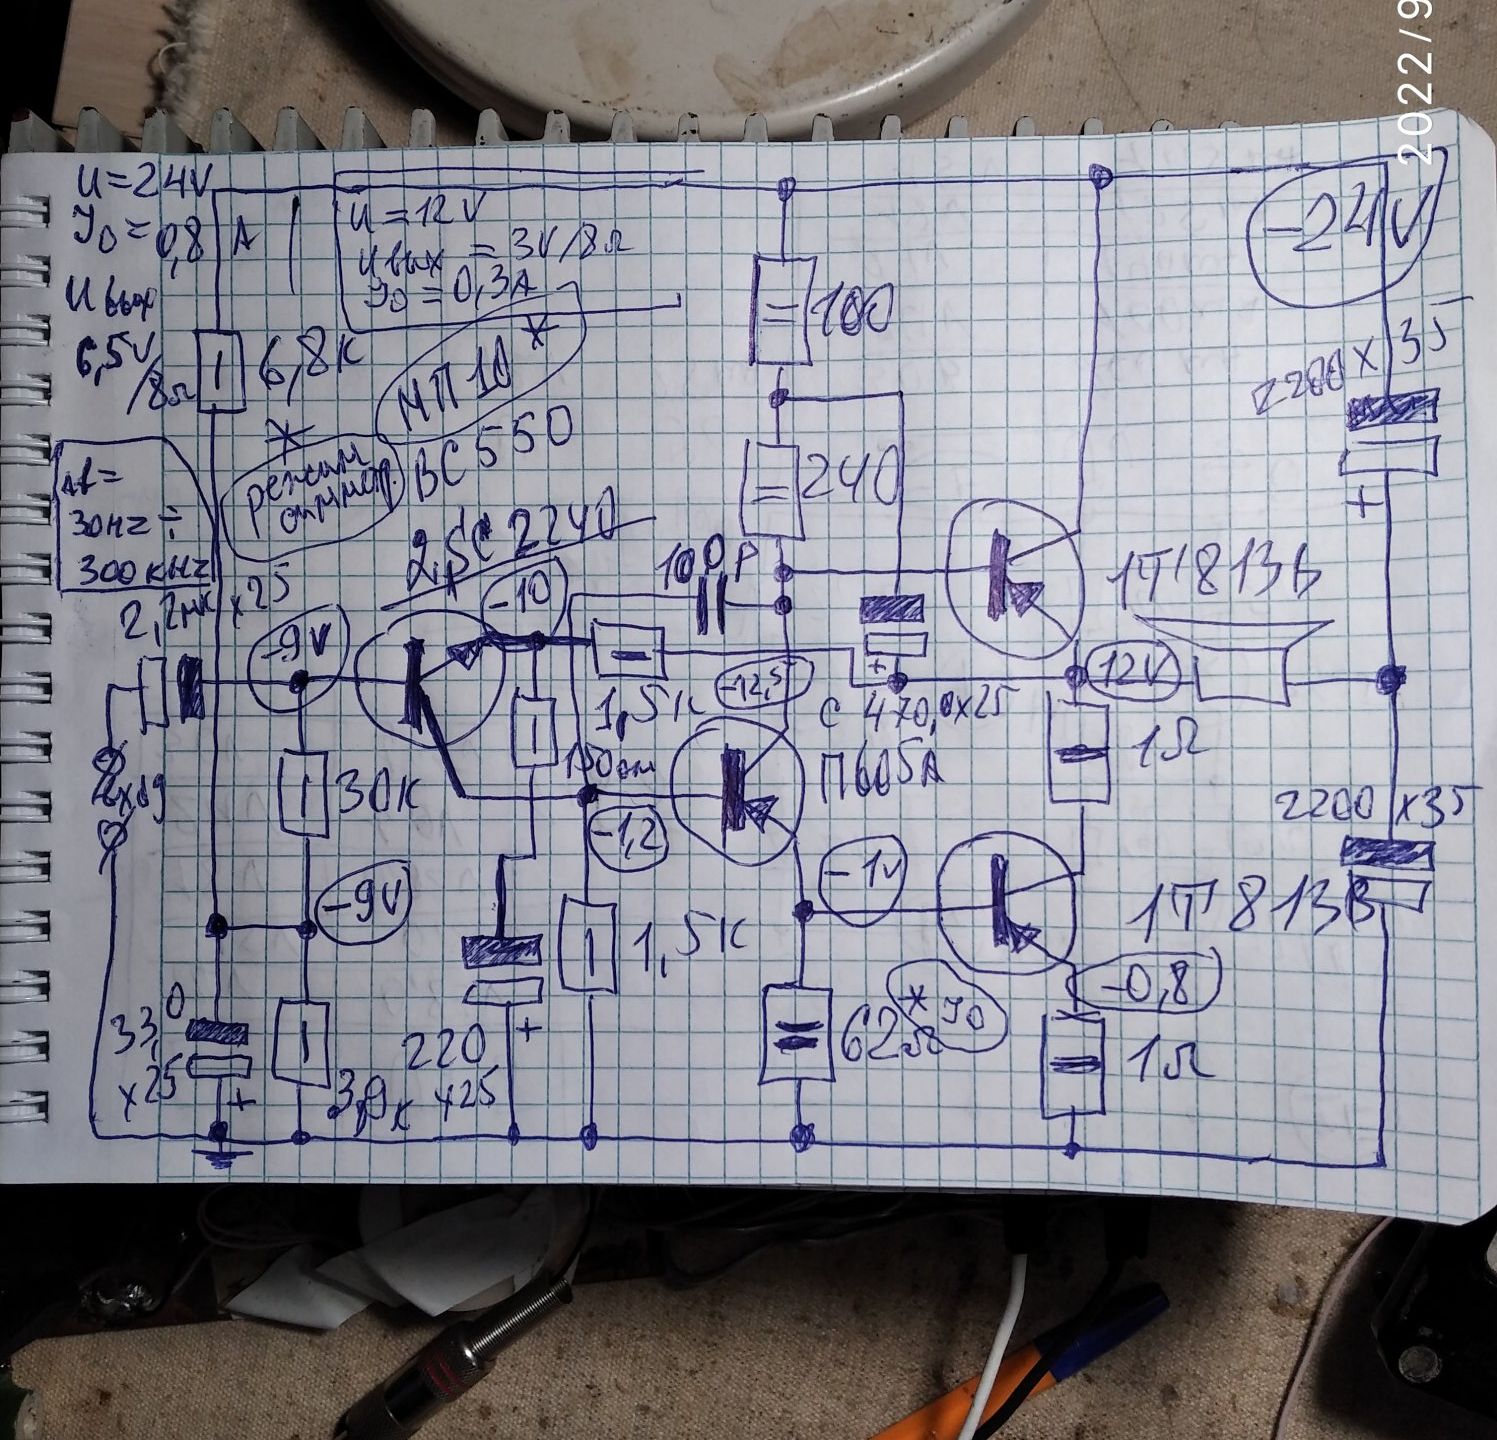 2022/9
U=24V
J0=0,8 A
U вых
6,5V
/8Ω
U=12V
Uвых = 3V/8Ω
J0=0,3A
-24V
6,8к
*
МП10*
BC550
режим
100
240
2200 x 35
Δf=
30Hz÷
300кHz
2SC2240
-10
100P
1T813В
2,2мк x25
-9V
1,5к
-12,5
12V
С 470,0x25
150ом
П605А
1Ω
30к
Вход
-1,2
-1V
2200 x35
-9V
1,5к
1T813В
-0,8
33,0
x25
+
3,9к
220
x25
+
62Ω
* J0
1Ω